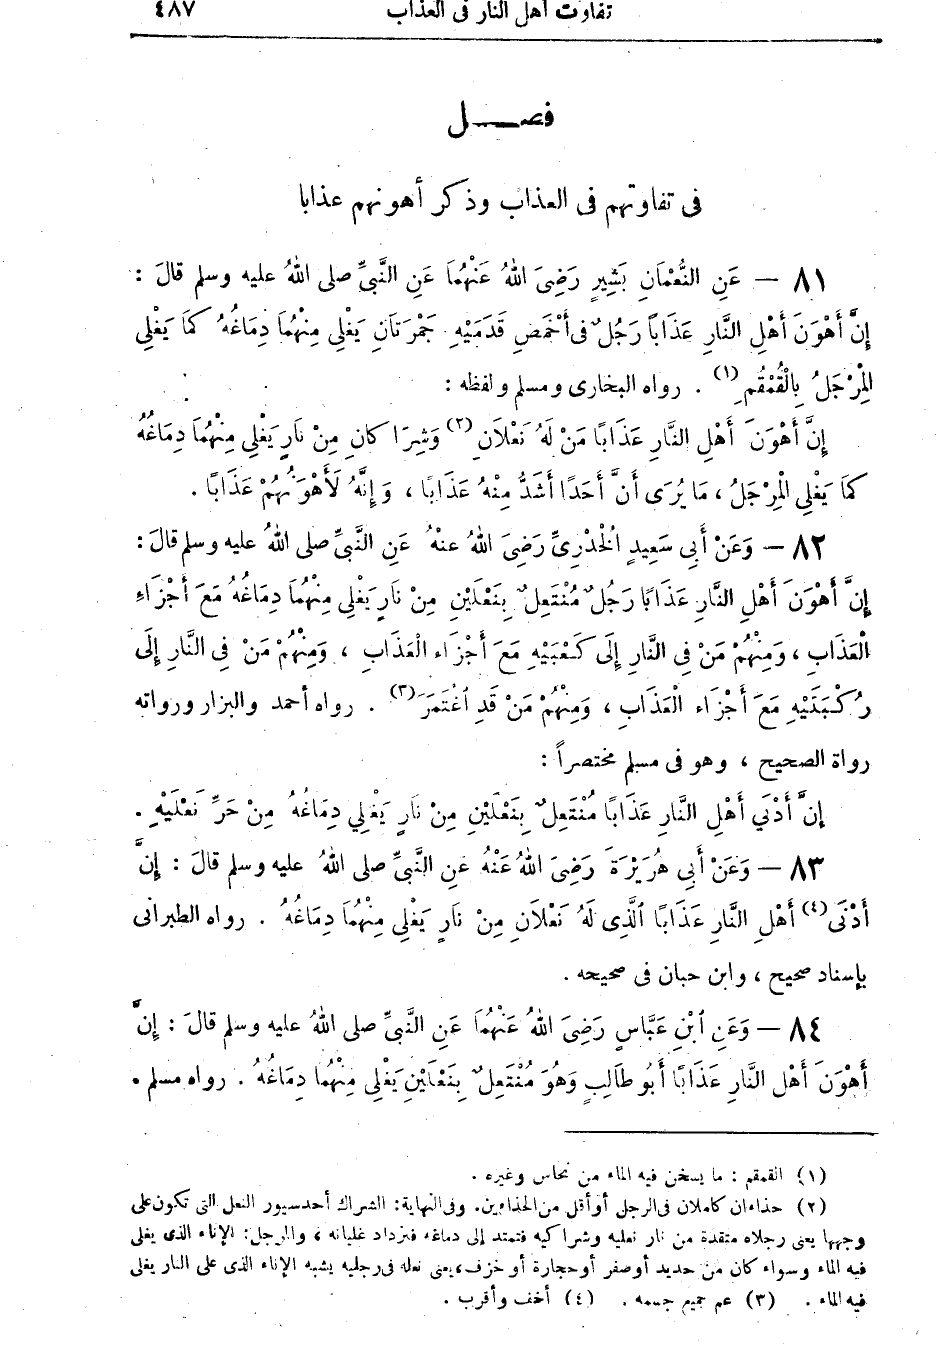 تفاوت أهل النار فى العذاب ٤٨٧
فصـــل
فى تفاوتهم فى العذاب وذكر أهونهم عذابا
٨١ — عَنِ النُّعْمَانِ بَشِيرٍ رَضِىَ اللهُ عَنْهُمَا عَنِ النَّبِىِّ صلى اللهُ عليه وسلم قالَ :
إِنَّ أَهْوَنَ أَهْلِ النَّارِ عَذَابًا رَجُلٌ فى أَخْمَصِ قَدَمَيْهِ جَمْرَتَانِ يَغْلِى مِنْهُمَا دِمَاغُهُ كَمَا يَغْلِى
الْمِرْجَلُ بِالْقُمْقُمِ (١) . رواه البخارى ومسلم ولفظه :
إِنَّ أَهْوَنَ أَهْلِ النَّارِ عَذَابًا مَنْ لَهُ نَعْلَانِ (٢) وَشِرَاكانِ مِنْ نَارٍ يَغْلِى مِنْهُمَا دِمَاغُهُ
كَمَا يَغْلِى الْمِرْجَلُ ، مَا يُرَى أَنَّ أَحَدًا أَشَدُّ مِنْهُ عَذَابًا ، وَإِنَّهُ لَأَهْوَنُهُمْ عَذَابًا .
٨٢ — وَعَنْ أَبِى سَعِيدٍ الْخُدْرِىِّ رَضِىَ اللهُ عنْهُ عَنِ النَّبىِّ صلى اللهُ عليه وسلم قالَ :
إِنَّ أَهْوَنَ أَهْلِ النَّارِ عَذَابًا رَجُلٌ مُنْتَعِلٌ بِنَعْلَيْنِ مِنْ نَارٍ يَغْلِى مِنْهُمَا دِمَاغُهُ مَعَ أَجْزَاءِ
الْعَذَابِ ، وَمِنْهُمْ مَنْ فِى النَّارِ إِلَى كَعْبَيْهِ مَعَ أَجْزَاء الْعَذَابِ ، وَمِنْهُمْ مَنْ فِى النَّارِ إِلَى
رُكْبَتَيْهِ مَعَ أَجْزَاء الْعَذَابِ ، وَمِنْهُمْ مَنْ قَدِ اغْتَمَرَ (٣) . رواه أحمد والبزار ورواته
رواة الصحيح ، وهو فى مسلم مختصراً :
إِنَّ أَدْنَي أَهْلِ النَّارِ عَذَابًا مُنْتَعِلٌ بِنَعْلَيْنِ مِنْ نَارٍ يَغْلِي دِمَاغُهُ مِنْ حَرِّ نَعْلَيْهِ .
٨٣ — وَعَنْ أَبِى هُرَيْرَةَ رَضِىَ اللهُ عَنْهُ عَنِ النَّبِىِّ صلى اللهُ عليه وسلم قالَ : إِنَّ
أَدْنَى (٤) أَهْلِ النَّارِ عَذَابًا الَّذِى لَهُ نَعْلَانِ مِنْ نَارٍ يَغْلِى مِنْهُمَا دِمَاغُهُ . رواه الطبرانى
بإسناد صحيح ، وابن حبان فى صحيحه .
٨٤ — وَعَنِ ابْنِ عَبَّاسٍ رَضِىَ اللهُ عَنْهُمَا عَنِ النَّبِىِّ صلى اللهُ عليه وسلم قالَ : إِنَّ
أَهْوَنَ أَهْلِ النَّارِ عَذَابًا أَبُو طَالِبٍ وَهُوَ مُنْتَعِلٌ بِنَعْلَيْنِ يَغْلِى مِنْهُمَا دِمَاغُهُ . رواه مسلم .
(١) القمقم : ما يسخن فيه الماء من نحاس وغيره .
(٢) حذاءان كاملان فى الرجل أو أقل من الحذاءين. وفى النهاية: الشراك أحد سيور النعل التى تكون على
وجهها يعنى رجلاه متقدة من نار نعليه وشراكيه فتمتد إلى دماغه فتزداد غليانه ، والمرجل: الإناء الذى يغلى
فيه الماء وسواء كان من حديد أو صفر أو حجارة أو خزف ، يعنى نعله فى رجليه يشبه الإناء الذى على النار يغلى
فيه الماء . (٣) عم جميع جسمه . (٤) أخف وأقرب .